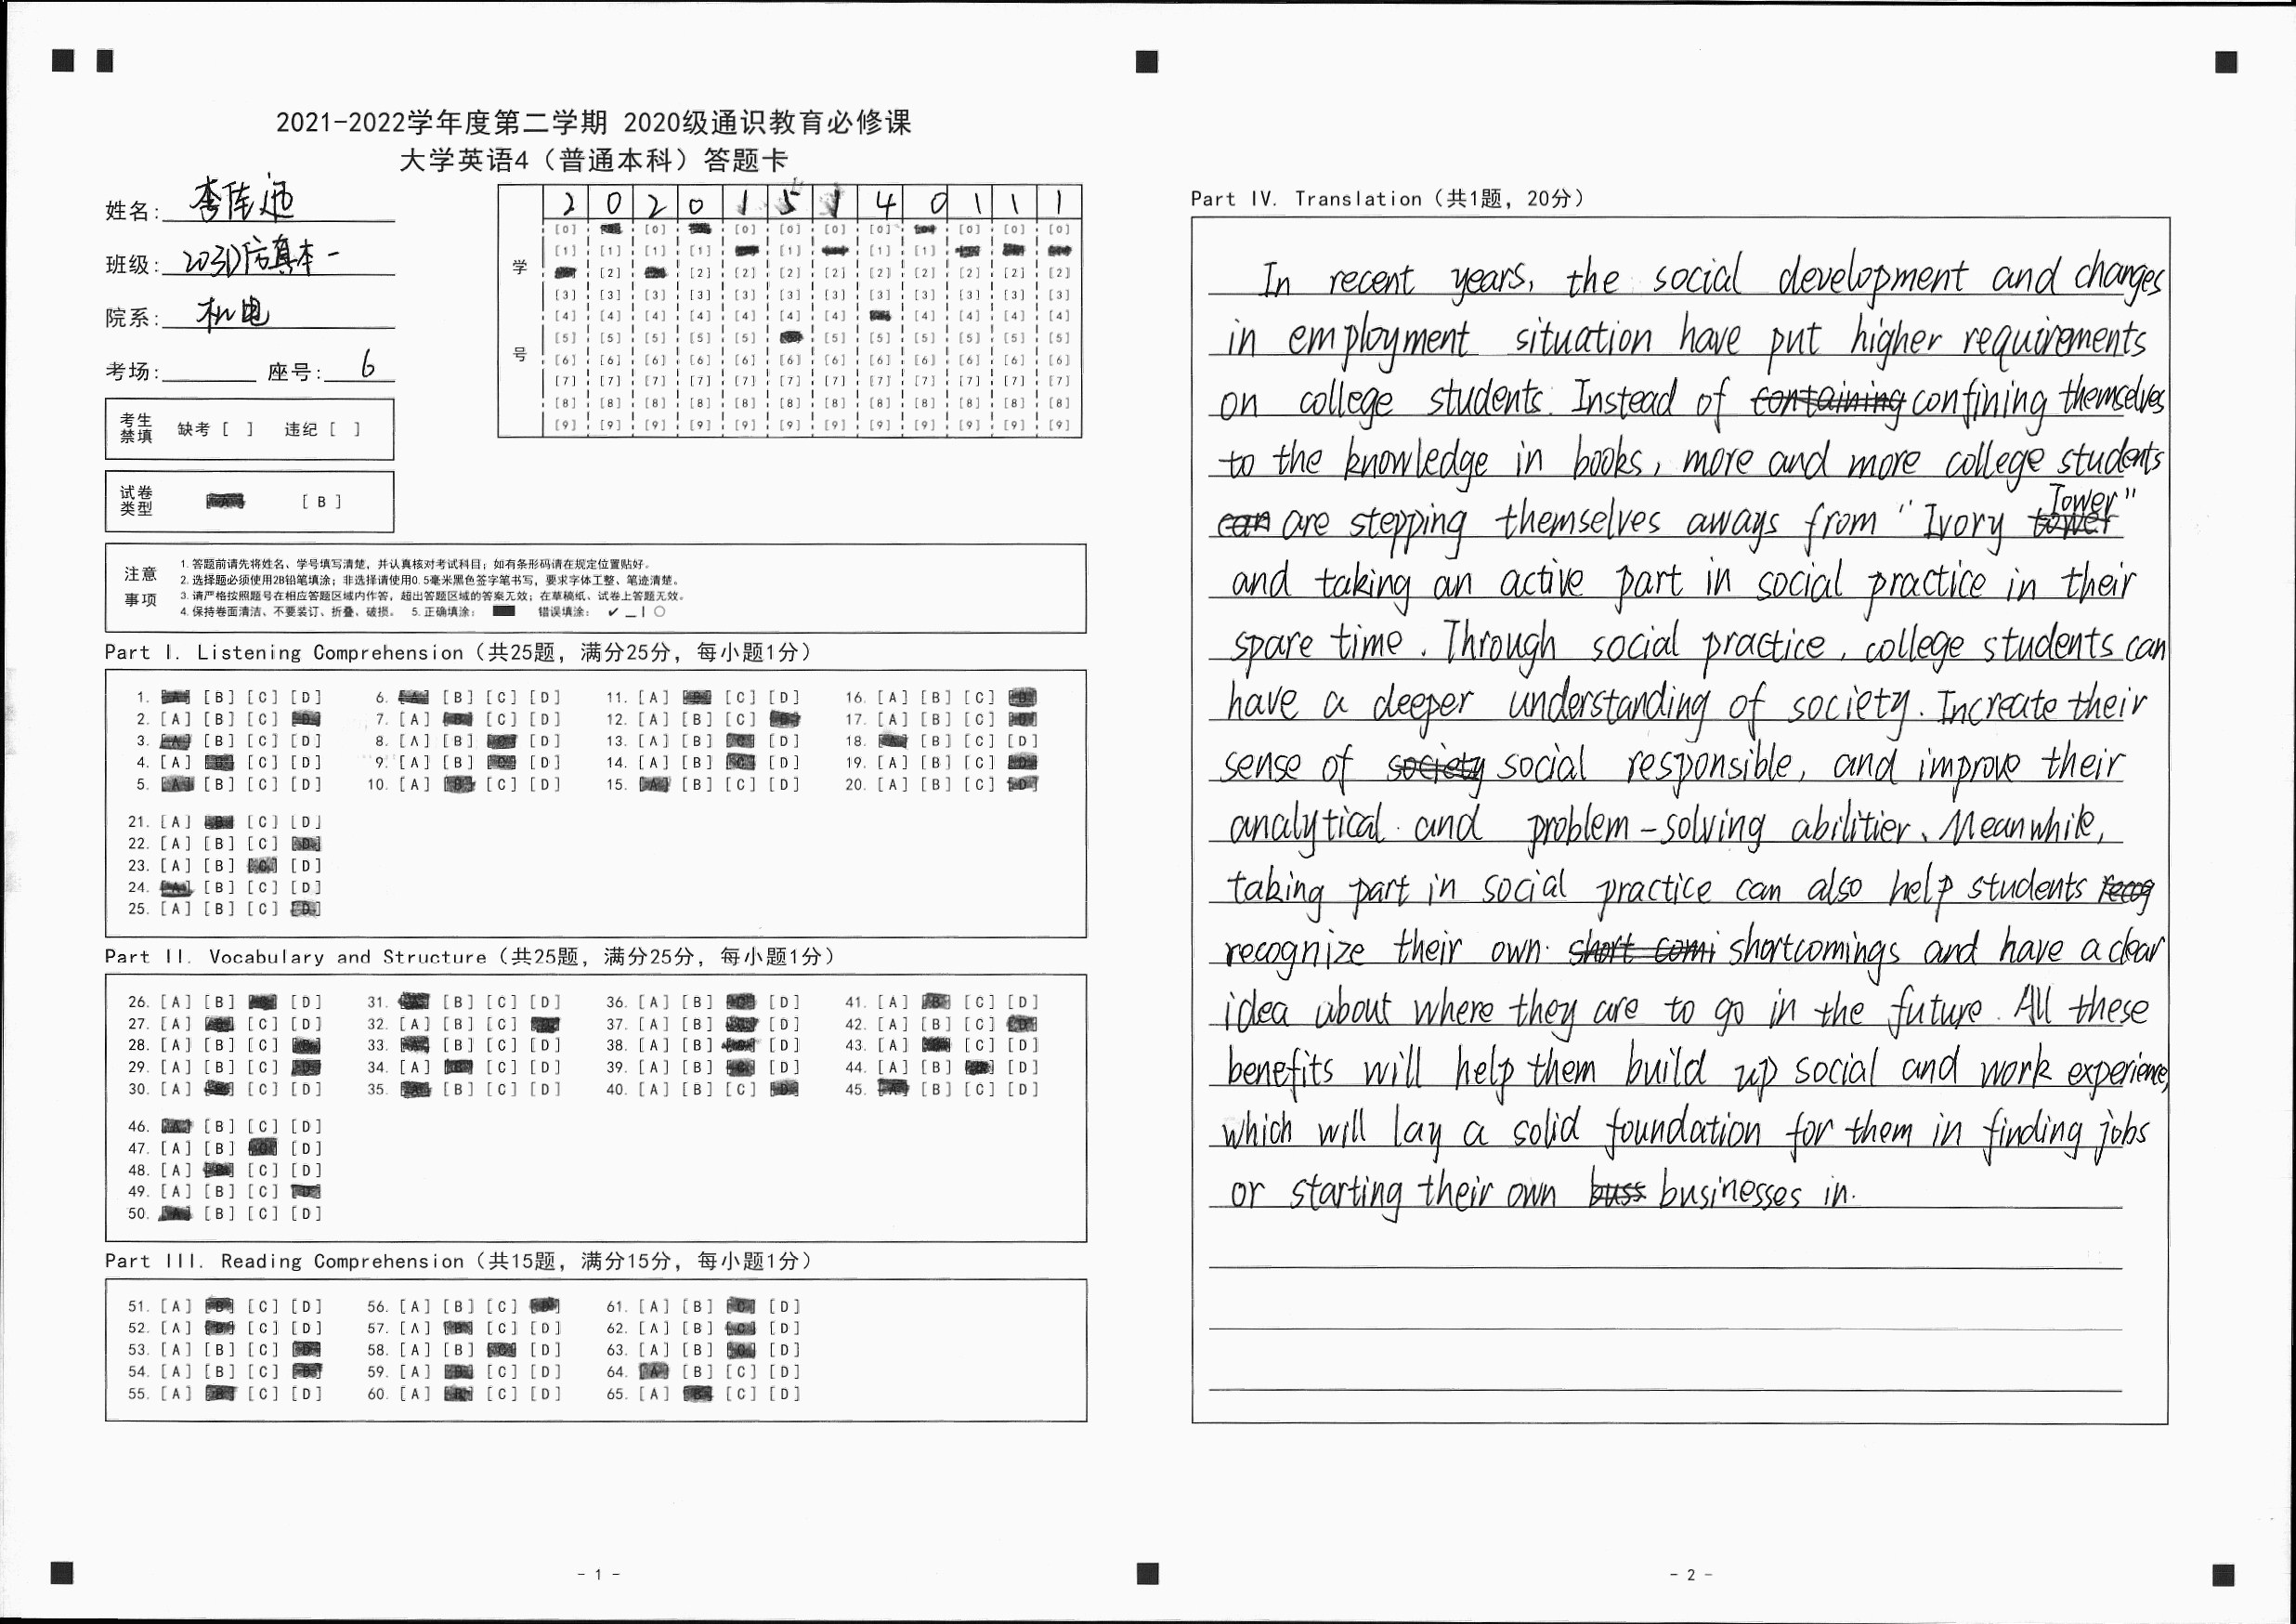 2021-2022学年度第二学期 2020级通识教育必修课
大学英语4（普通本科）答题卡
姓名: 李佳迅
班级: 2031仿真本一
院系: 机电
考场: 座号: 6
考生禁填 缺考 [ ] 违纪 [ ]
试卷类型 [A] [B]
学号
2 0 2 0 1 5 1 4 0 1 1 1
[0] [0] [0] [0] [0] [0] [0] [0] [0] [0] [0] [0]
[1] [1] [1] [1] [1] [1] [1] [1] [1] [1] [1] [1]
[2] [2] [2] [2] [2] [2] [2] [2] [2] [2] [2] [2]
[3] [3] [3] [3] [3] [3] [3] [3] [3] [3] [3] [3]
[4] [4] [4] [4] [4] [4] [4] [4] [4] [4] [4] [4]
[5] [5] [5] [5] [5] [5] [5] [5] [5] [5] [5] [5]
[6] [6] [6] [6] [6] [6] [6] [6] [6] [6] [6] [6]
[7] [7] [7] [7] [7] [7] [7] [7] [7] [7] [7] [7]
[8] [8] [8] [8] [8] [8] [8] [8] [8] [8] [8] [8]
[9] [9] [9] [9] [9] [9] [9] [9] [9] [9] [9] [9]
注意事项
1.答题前请先将姓名、学号填写清楚，并认真核对考试科目；如有条形码请在规定位置贴好。
2.选择题必须使用2B铅笔填涂；非选择请使用0.5毫米黑色签字笔书写，要求字体工整、笔迹清楚。
3.请严格按照题号在相应答题区域内作答，超出答题区域的答案无效；在草稿纸、试卷上答题无效。
4.保持卷面清洁、不要装订、折叠、破损。 5.正确填涂： 错误填涂：
Part I. Listening Comprehension（共25题，满分25分，每小题1分）
1. [A] [B] [C] [D] 6. [A] [B] [C] [D] 11. [A] [B] [C] [D] 16. [A] [B] [C] [D]
2. [A] [B] [C] [D] 7. [A] [B] [C] [D] 12. [A] [B] [C] [D] 17. [A] [B] [C] [D]
3. [A] [B] [C] [D] 8. [A] [B] [C] [D] 13. [A] [B] [C] [D] 18. [A] [B] [C] [D]
4. [A] [B] [C] [D] 9. [A] [B] [C] [D] 14. [A] [B] [C] [D] 19. [A] [B] [C] [D]
5. [A] [B] [C] [D] 10. [A] [B] [C] [D] 15. [A] [B] [C] [D] 20. [A] [B] [C] [D]
21. [A] [B] [C] [D]
22. [A] [B] [C] [D]
23. [A] [B] [C] [D]
24. [A] [B] [C] [D]
25. [A] [B] [C] [D]
Part II. Vocabulary and Structure（共25题，满分25分，每小题1分）
26. [A] [B] [C] [D] 31. [A] [B] [C] [D] 36. [A] [B] [C] [D] 41. [A] [B] [C] [D]
27. [A] [B] [C] [D] 32. [A] [B] [C] [D] 37. [A] [B] [C] [D] 42. [A] [B] [C] [D]
28. [A] [B] [C] [D] 33. [A] [B] [C] [D] 38. [A] [B] [C] [D] 43. [A] [B] [C] [D]
29. [A] [B] [C] [D] 34. [A] [B] [C] [D] 39. [A] [B] [C] [D] 44. [A] [B] [C] [D]
30. [A] [B] [C] [D] 35. [A] [B] [C] [D] 40. [A] [B] [C] [D] 45. [A] [B] [C] [D]
46. [A] [B] [C] [D]
47. [A] [B] [C] [D]
48. [A] [B] [C] [D]
49. [A] [B] [C] [D]
50. [A] [B] [C] [D]
Part III. Reading Comprehension（共15题，满分15分，每小题1分）
51. [A] [B] [C] [D] 56. [A] [B] [C] [D] 61. [A] [B] [C] [D]
52. [A] [B] [C] [D] 57. [A] [B] [C] [D] 62. [A] [B] [C] [D]
53. [A] [B] [C] [D] 58. [A] [B] [C] [D] 63. [A] [B] [C] [D]
54. [A] [B] [C] [D] 59. [A] [B] [C] [D] 64. [A] [B] [C] [D]
55. [A] [B] [C] [D] 60. [A] [B] [C] [D] 65. [A] [B] [C] [D]
- 1 -
Part IV. Translation（共1题，20分）
In recent years, the social development and changes
in employment situation have put higher requirements
on college students. Instead of containing confining themselves
to the knowledge in books, more and more college students
can are stepping themselves aways from "Ivory tower Tower"
and taking an active part in social practice in their
spare time. Through social practice, college students can
have a deeper understanding of society. Increate their
sense of society social responsible, and improve their
analytical and problem-solving abilitier. Meanwhile,
taking part in social practice can also help students recog
recognize their own short comi shortcomings and have a clear
idea about where they are to go in the future. All these
benefits will help them build up social and work experience,
which will lay a solid foundation for them in finding jobs
or starting their own buss businesses in.
- 2 -